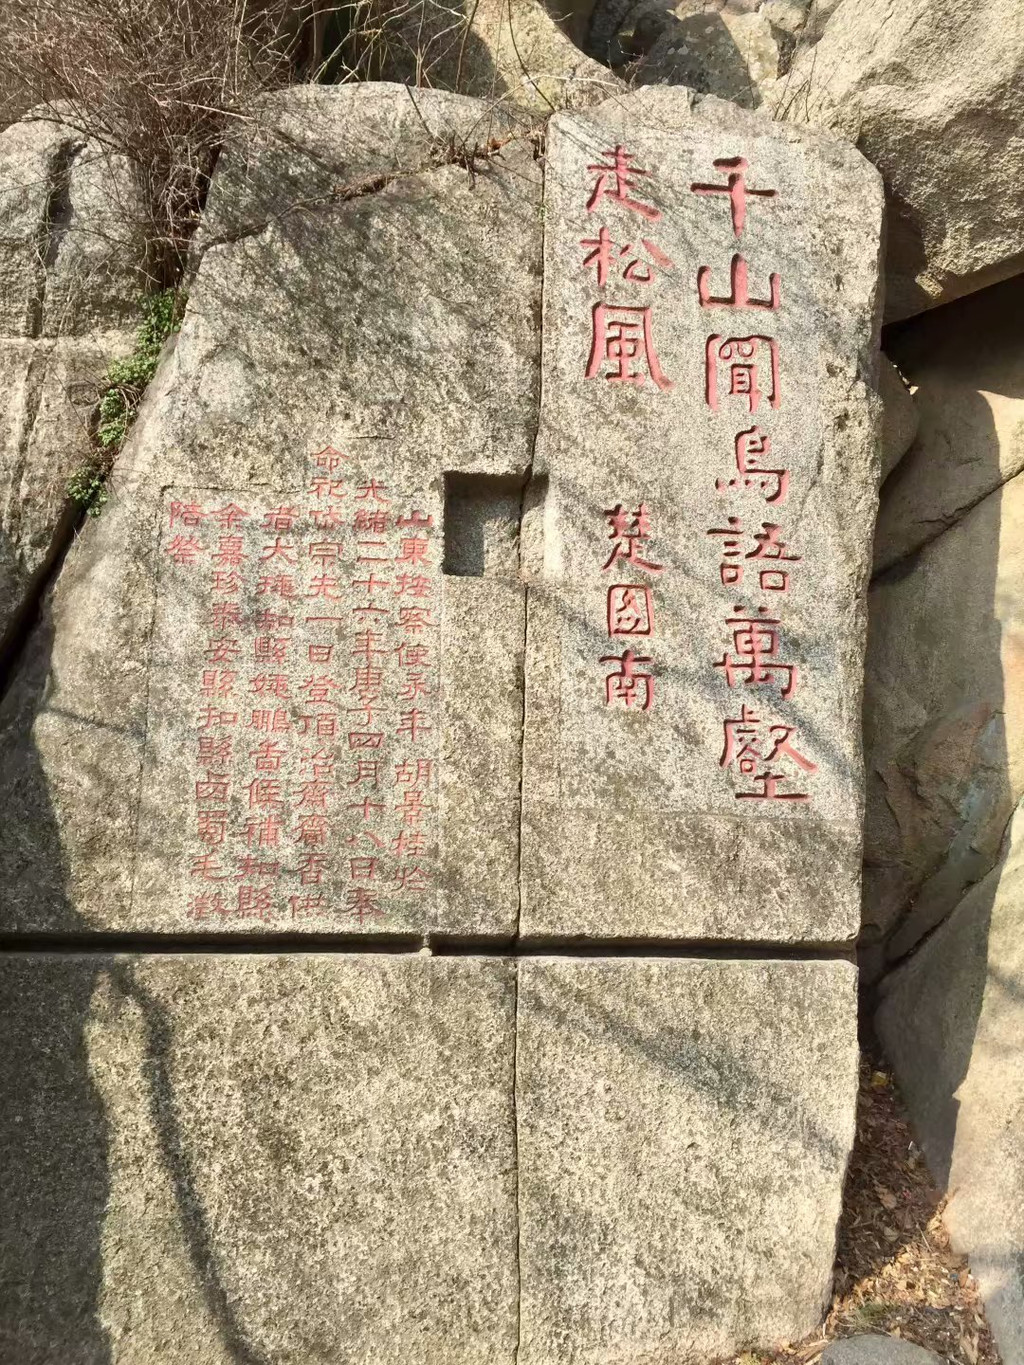 千山聞鳥語萬壑
走松風
楚國南
山東按察使永年胡景桂於
光緒二十六年庚子四月十八日奉
命祀岱宗先一日登頂治齋齎香供
者大挑知縣姚鵬啚候補知縣
余嘉珍泰安縣知縣西蜀毛澂
陪祭